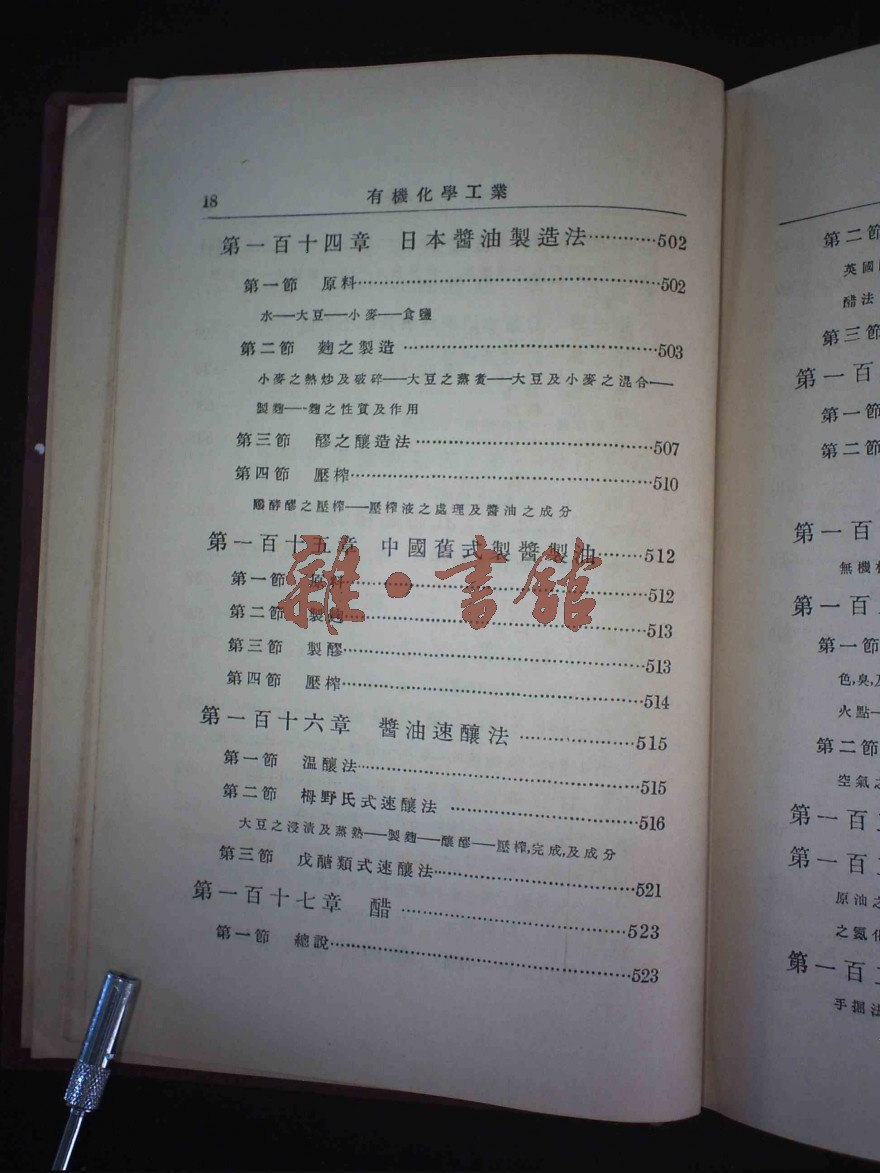 18 有機化學工業
第一百十四章 日本醬油製造法…………502
第一節 原料……………………………502
水——大豆——小麥——食鹽
第二節 麴之製造……………………………503
小麥之熱炒及破碎——大豆之蒸煮——大豆及小麥之混合——
製麴——麴之性質及作用
第三節 醪之釀造法……………………………507
第四節 壓榨……………………………510
醱酵醪之壓榨——壓榨液之處理及醬油之成分
第一百十五章 中國舊式製醬製油………512
第一節 原料……………………………512
第二節 製麴……………………………513
第三節 製醪……………………………513
第四節 壓榨……………………………514
第一百十六章 醬油速釀法……………515
第一節 溫釀法……………………………515
第二節 栂野氏式速釀法……………………516
大豆之浸漬及蒸熟——製麴——釀醪——壓榨,完成,及成分
第三節 戊醣類式速釀法……………………521
第一百十七章 醋……………………………523
第一節 總說……………………………523
雜·書館
第二節
英國
醋法
第三節
第一百
第一節
第二節
第一百
無機
第一百
第一節
色,臭,及
火點—
第二節
空氣之
第一百
第一百
原油之
之氮化
第一百
手掘法